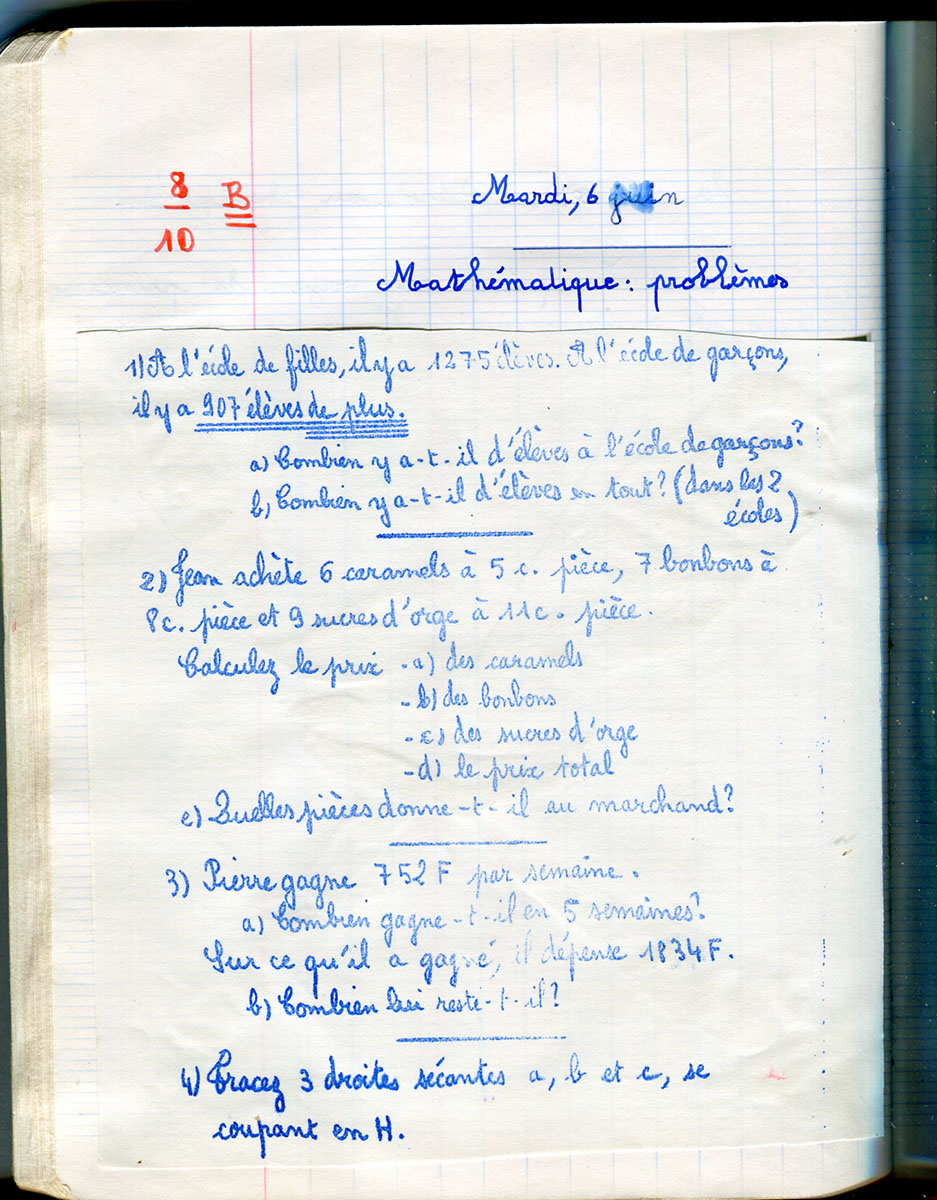 8
10
B
Mardi, 6 juin
Mathématique : problèmes
1) A l'école de filles, il y a 1275 élèves. A l'école de garçons,
il y a 907 élèves de plus.
a) Combien y a-t-il d'élèves à l'école de garçons?
b) Combien y a-t-il d'élèves en tout? (dans les 2
écoles)
2) Jean achète 6 caramels à 5 c. pièce, 7 bonbons à
8c. pièce et 9 sucres d'orge à 11c. pièce.
Calculez le prix - a) des caramels
- b) des bonbons
- c) des sucres d'orge
- d) le prix total
e) Quelles pièces donne-t-il au marchand?
3) Pierre gagne 752 F par semaine.
a) Combien gagne-t-il en 5 semaines?
Sur ce qu'il a gagné, il dépense 1834 F.
b) Combien lui reste-t-il?
4) Tracez 3 droites sécantes a, b et c, se
coupant en H.